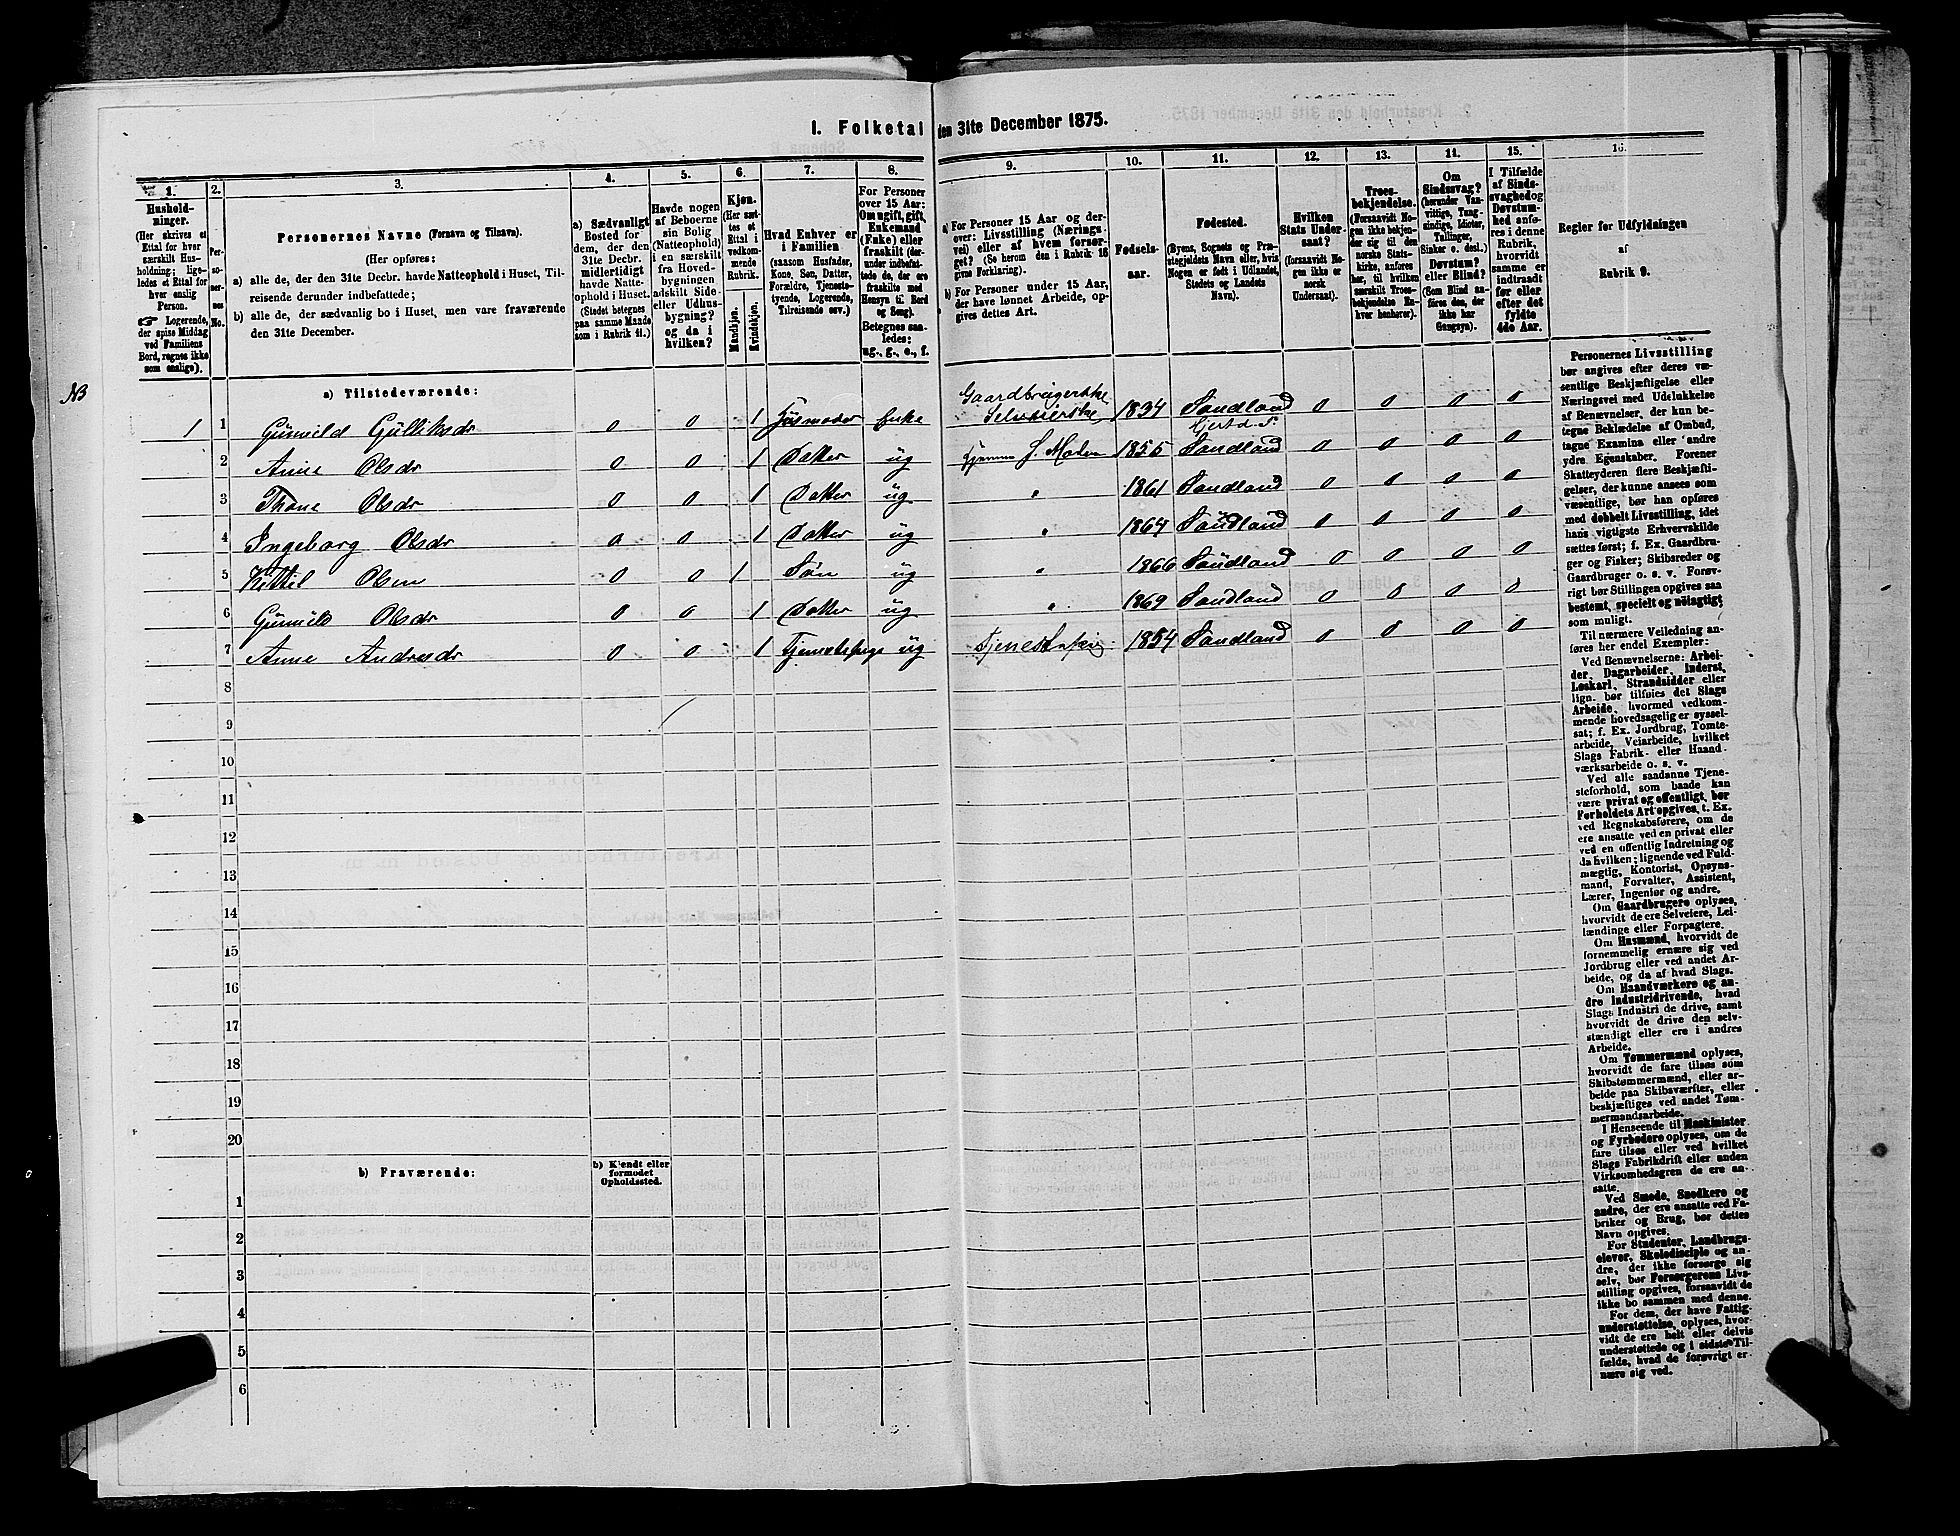 I. Folketal den 31te December 1875.
1. 2. 3. 4. 5. 6. 7. 8. 9. 10. 11. 12. 13. 14. 15. 16.
Hushold-
ninger.
(Her skrives et
Ettal for hver
særskilt Hus-
holdning; lige-
ledes et Ettal for
hver enslig
Person.
☞ Logerende,
der spise Middag
ved Familiens
Bord, regnes ikke
som enslige).
Per-
so-
ner-
nes
No.
Personernes Navne (Fornavn og Tilnavn).
(Her opføres:
a) alle de, der den 31te Decbr. havde Natteophold i Huset, Til-
reisende derunder indbefattede;
b) alle de, der sædvanlig bo i Huset, men vare fraværende
den 31te December.
a) Sædvanligt
Bosted for
dem, der den
31te Decbr.
midlertidigt
havde Natte-
ophold i Huset.
(Stedet betegnes
paa samme Maade
som i Rubrik 11.)
Havde nogen
af Beboerne
sin Bolig
(Natteophold)
i en særskilt
fra Hoved-
bygningen
adskilt Side-
eller Udhus-
bygning?
og da i
hvilken?
Kjøn.
(Her sæt-
tes et
Ettal i
vedkom-
mende
Rubrik.
Mandkjøn.
Kvindekjøn.
Hvad Enhver er
i Familien
(saasom Husfader,
Kone, Søn, Datter,
Forældre, Tjeneste-
tyende, Logerende,
Tilreisende osv.)
For Personer
over 15 Aar:
Om ugift, gift,
Enkemand
(Enke) eller
fraskilt (der-
under indbefat-
tede de, der ere
fraskilte med
Hensyn til Bord
og Seng).
Betegnes saa-
ledes:
ug., g., e., f.
a) For Personer 15 Aar og der-
over: Livsstilling (Nærings-
vei) eller af hvem forsør-
get? (Se herom den i Rubrik 16
givne Forklaring).
b) For Personer under 15 Aar,
der have lønnet Arbeide, op-
gives dettes Art.
Fødsels-
aar.
Fødested.
(Byens, Sognets og Præ-
stegjeldets Navn eller, hvis
Nogen er født i Udlandet,
Stedets og Landets
Navn).
Hvilken
Stats Under-
saat?
(forsaavidt No-
gen ikke er
norsk
Undersaat).
Troes-
bekjendelse.
(Forsaavidt No-
gen ikke bekjen-
der sig til den
norske Stats-
kirke, anføres
her, til hvilken
særskilt Troes-
bekjendelse En-
hver henhører).
Om
Sindssvag?
(herunder Van-
vittige, Tung-
sindige, Idioter,
Tullinger,
Sinker o. desl.)
Døvstum?
eller Blind?
(Som Blind an-
føres den, der
ikke har
Gangsyn).
I Tilfælde
af Sinds-
svaghed og
Døvstum-
hed anfø-
res i denne
Rubrik,
hvorvidt
samme er
indtraadt
før eller
efter det
fyldte
4de Aar.
Regler for Udfyldningen
af
Rubrik 9.
N3
a) Tilstedeværende:
1 1 Gunild Gulliksdr 0 0 1 Husmoder Enke Gaardbrugerske Selveierske 1834 Saudland Hjertd. P. 0 0 0 0
2 Anne Olsdr 0 0 1 Datter ug Hjemme h. Moderen 1855 Saudland 0 0 0 0
3 Thone Olsdr 0 0 1 Datter ug " 1861 Saudland 0 0 0 0
4 Ingeborg Olsdr 0 0 1 Datter ug " 1864 Saudland 0 0 0 0
5 Kittil Olsen 0 0 1 Søn ug " 1866 Saudland 0 0 0 0
6 Gunild Olsdr 0 0 1 Datter ug " 1869 Saudland 0 0 0 0
7 Anne Andresdr 0 0 1 Tjenestepige ug 1854 Saudland 0 0 0 0
8
9
10
11
12
13
14
15
16
17
18
19
20
b) Fraværende:
b) Kjendt eller
formodet
Opholdssted.
1
2
3
4
5
6
Personernes Livsstilling
bør angives efter deres væ-
sentlige Beskjæftigelse eller
Næringsvei med Udelukkelse
af Benævnelser, der kun be-
tegne Beklædelse af Ombud,
tagne Examina eller andre
ydre Egenskaber. Forener
Skatteyderen flere Beskjæfti-
gelser, der kunne ansees som
væsentlige, bør han opføres
med dobbelt Livsstilling, idet
hans vigtigste Erhvervskilde
sættes først; f. Ex. Gaardbru-
ger og Fisker; Skibsreder og
Gaardbruger o. s. v. Forøv-
rigt bør Stillingen opgives saa
bestemt, specielt og nøiagtigt
som muligt.
Til nærmere Veiledning an-
føres her endel Exempler:
Ved Benævnelserne: Arbei-
der, Dagarbeider, Inderst,
Løskarl, Strandsidder eller
lign. bør tilføies det Slags
Arbeide, hvormed vedkom-
mende hovedsagelig er syssel-
sat; f. Ex. Jordbrug, Tomte-
arbeide, Veiarbeide, hvilket
Slags Fabrik- eller Haand-
værksarbeide o. s. v.
Ved alle saadanne Tjene-
steforhold, som baade kan
være privat og offentligt, bør
Forholdets Art opgives, t. Ex.
ved Regnskabsførere, om de
ere ansatte ved en privat eller
ved en offentlig Indretning og
da hvilken; lignende ved Fuld-
mægtig, Kontorist, Opsyns-
mand, Forvalter, Assistent,
Lærer, Ingeniør og andre.
Om Gaardbrugere oplyses,
hvorvidt de ere Selveiere, Lei-
lændinge eller Forpagtere.
Om Husmænd, hvorvidt de
fornemmelig ernære sig ved
Jordbrug eller ved andet Ar-
beide, og da af hvad Slags.
Om Haandværkere og an-
dre Industridrivende, hvad
Slags Industri de drive, samt
hvorvidt de drive den selv-
stændigt eller ere i andres
Arbeide.
Om Tømmermænd oplyses,
hvorvidt de fare tilsøs som
Skibstømmermænd, eller ar-
beide paa Skibsværfter, eller
beskjæftiges ved andet Tøm-
mermandsarbeide.
I Henseende til Maskinister
og Fyrbødere oplyses, om de
fare tilsøs eller ved hvilket
Slags Fabrikdrift eller anden
Virksomhedsgren de ere an-
satte.
Ved Smede, Snedkere og
andre, der ere ansatte ved Fa-
briker og Brug, bør dettes
Navn opgives.
For Studenter, Landbrugs-
elever, Skoledisciple og an-
dre, der ikke forsørge sig
selv, bør Forsørgerens Livs-
stilling opgives, forsaavidt de
ikke bo sammen med denne.
For dem, der have Fattig-
understøttelse, oplyses, hvor-
vidt de ere helt eller delvis
understøttede og i sidste Til-
fælde, hvad de forøvrigt er-
nære sig ved.